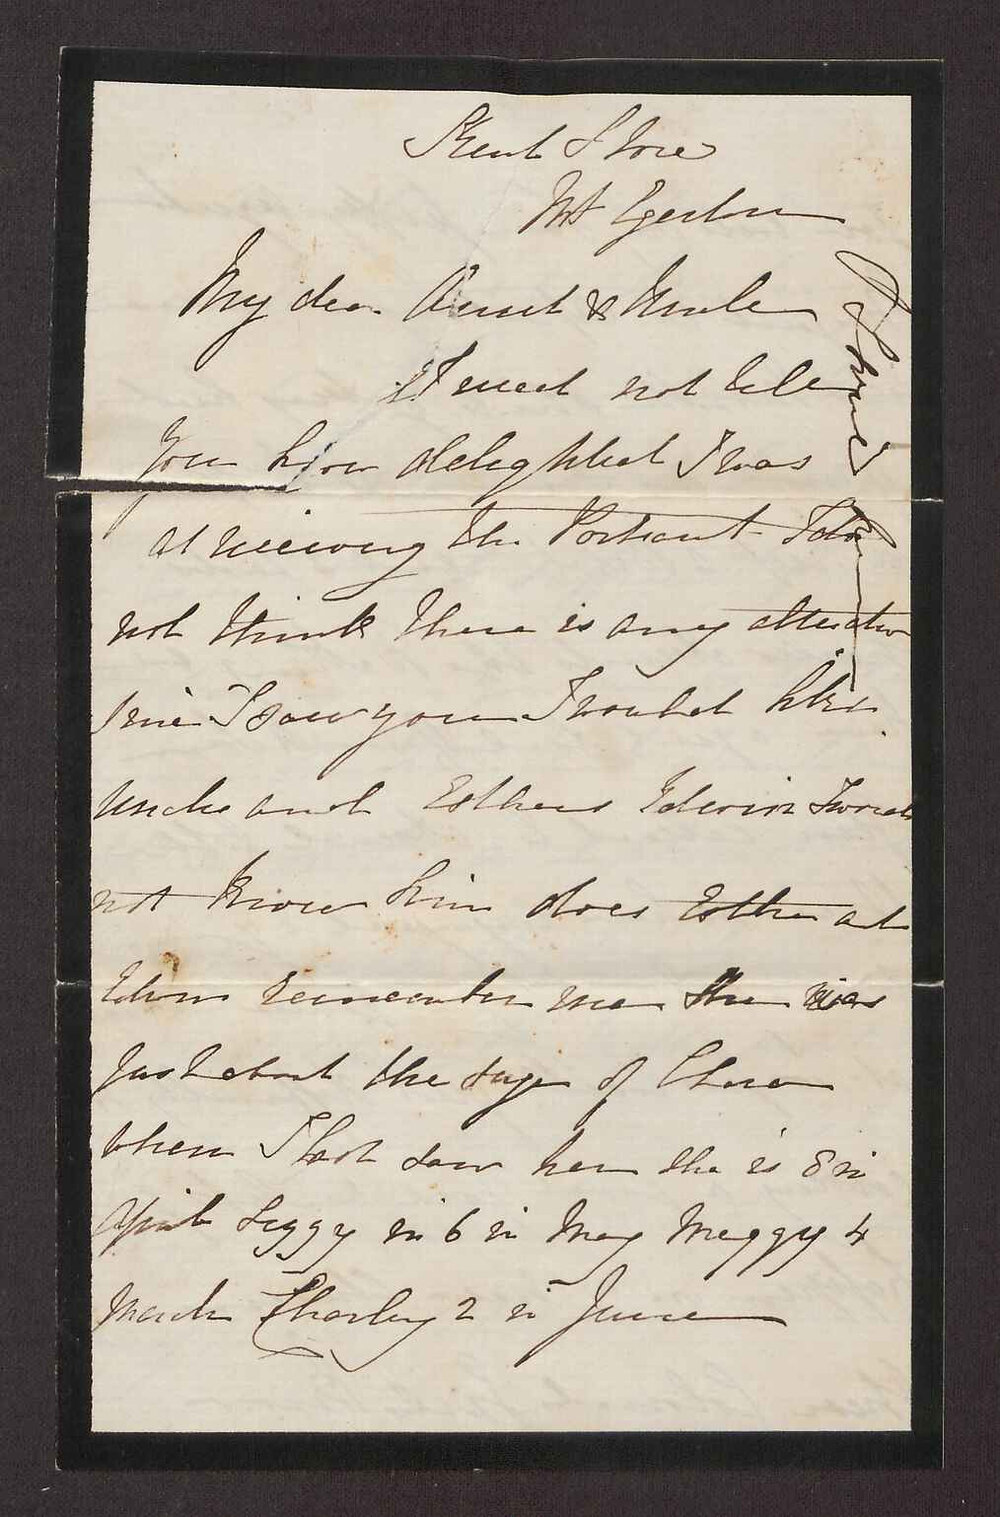 Kent Store
Mt Egerton
My dear Aunt & Uncle
I need not tell
you how delighted I was
at recieving the Portrait I do
not think there is any alteration
sinc I saw you I would like
uncles and Esthers Edwin I would
not know him does Esther and
Edwin remember me She was
Just about the age of Clara
when I last saw her she is 8 in
April Liggy is 6 in May Meggy 4
March Charley 2 in June